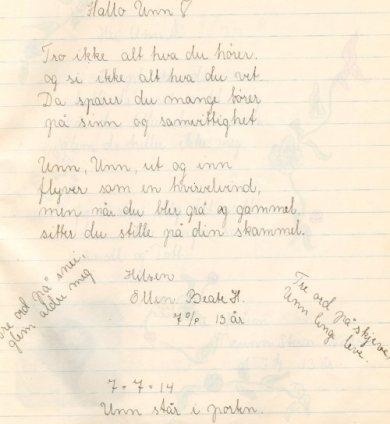 Hallo Unn!
Tro ikke alt hva du hører.
og si ikke alt hva du vet.
Da sparer du mange bører
på sinn og samvittighet.
Unn, Unn, ut og inn
flyver som en hvirvelvind,
men når du blir grå og gammel
sitter du stille på din skammel.
Hilsen
Ellen Beate H.
13 år
Tre ord på snei,
glem aldri meg
Tre ord på skjeve,
Unn lenge leve.
7+7=14
Unn står i porten.